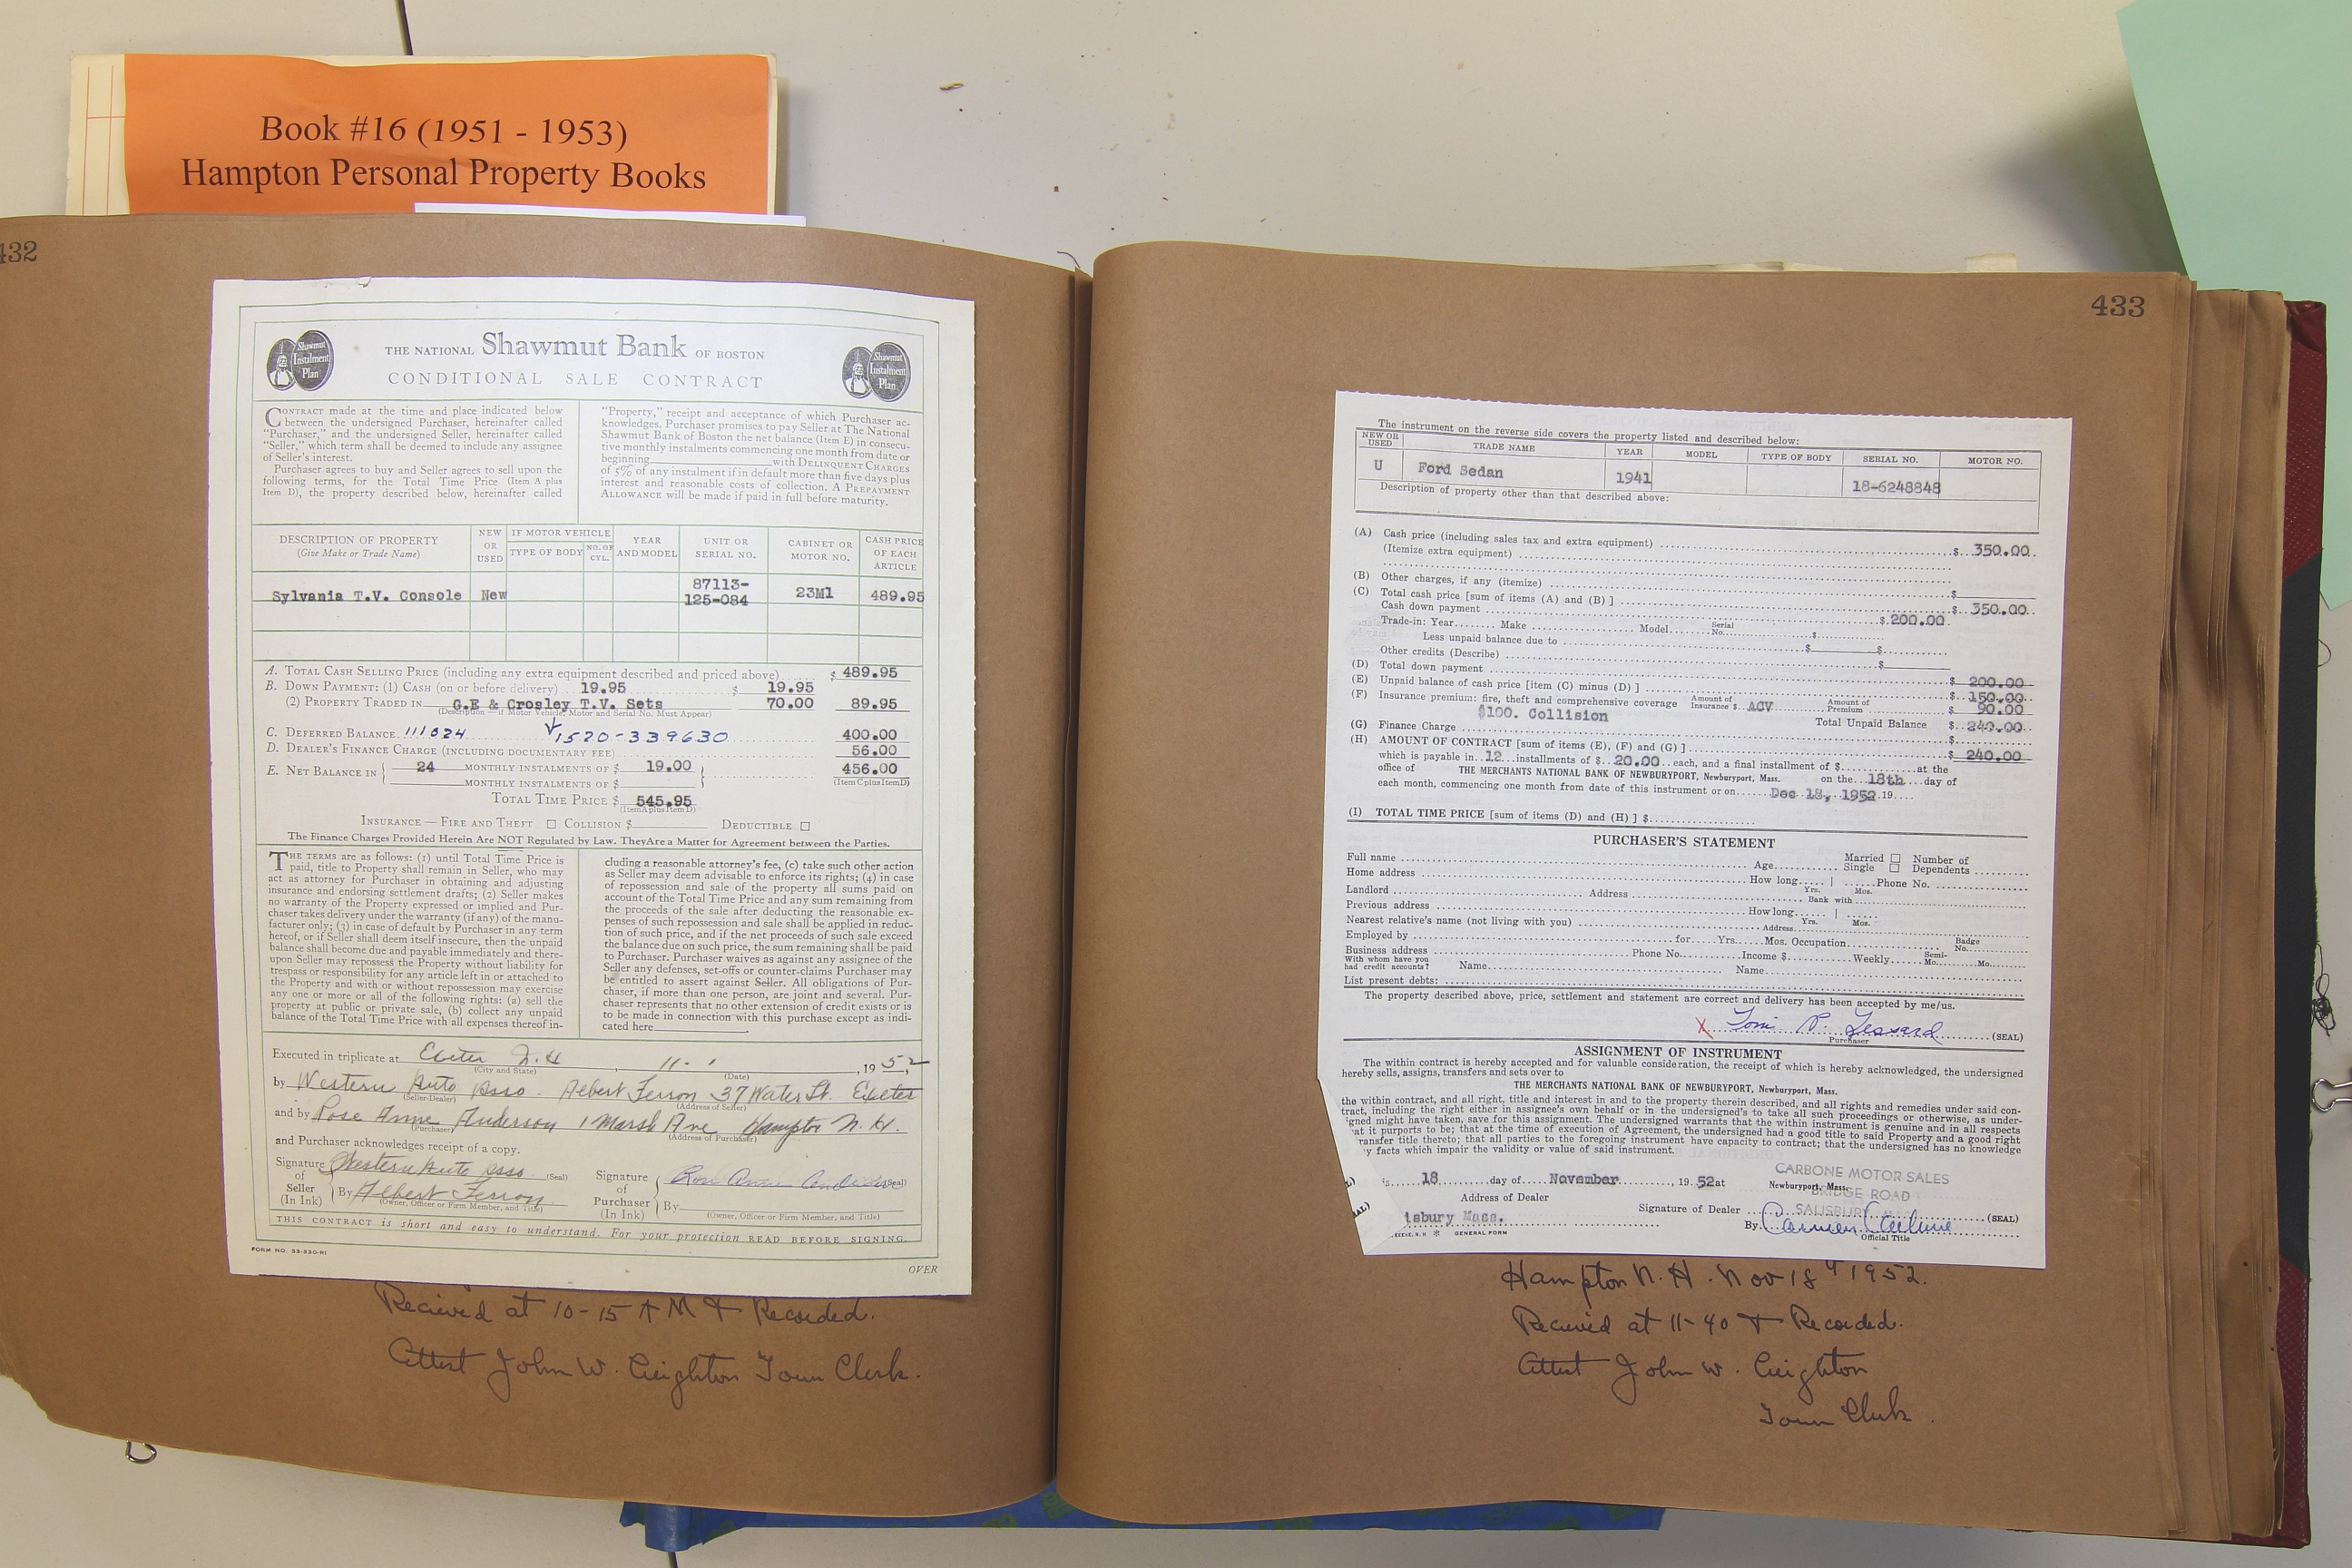 Book #16 (1951 - 1953)
Hampton Personal Property Books
432
Shawmut
Instalment
Plan
THE NATIONAL Shawmut Bank OF BOSTON
CONDITIONAL SALE CONTRACT
Shawmut
Instalment
Plan
CONTRACT made at the time and place indicated below
between the undersigned Purchaser, hereinafter called
"Purchaser," and the undersigned Seller, hereinafter called
"Seller," which term shall be deemed to include any assignee
of Seller's interest.
Purchaser agrees to buy and Seller agrees to sell upon the
following terms, for the Total Time Price (Item A plus
Item D), the property described below, hereinafter called
"Property," receipt and acceptance of which Purchaser ac-
knowledges. Purchaser promises to pay Seller at The National
Shawmut Bank of Boston the net balance (Item E) in consecu-
tive monthly instalments commencing one month from date or
beginning with DELINQUENT CHARGES
of 5% of any instalment if in default more than five days plus
interest and reasonable costs of collection. A PREPAYMENT
ALLOWANCE will be made if paid in full before maturity.
DESCRIPTION OF PROPERTY
(Give Make or Trade Name)
NEW
OR
USED
IF MOTOR VEHICLE
TYPE OF BODY
NO. OF
CYL.
YEAR
AND MODEL
UNIT OR
SERIAL NO.
CABINET OR
MOTOR NO.
CASH PRICE
OF EACH
ARTICLE
Sylvania T.V. Console New 87113-
125-084 23M1 489.95
A. TOTAL CASH SELLING PRICE (including any extra equipment described and priced above) $ 489.95
B. DOWN PAYMENT: (1) CASH (on or before delivery) 19.95 $ 19.95
(2) PROPERTY TRADED IN G.E & Crosley T.V. Sets 70.00 89.95
(Description—if Motor Vehicle, Motor and Serial No. Must Appear)
C. DEFERRED BALANCE 111024 1520-339630 400.00
D. DEALER'S FINANCE CHARGE (INCLUDING DOCUMENTARY FEE) 56.00
E. NET BALANCE IN 24 MONTHLY INSTALMENTS OF $ 19.00 456.00
MONTHLY INSTALMENTS OF $ (Item C plus Item D)
TOTAL TIME PRICE $ 545.95
(Item A plus Item D)
INSURANCE — FIRE AND THEFT ☐ COLLISION $ DEDUCTIBLE ☐
The Finance Charges Provided Herein Are NOT Regulated by Law. They Are a Matter for Agreement between the Parties.
THE TERMS are as follows: (1) until Total Time Price is
paid, title to Property shall remain in Seller, who may
act as attorney for Purchaser in obtaining and adjusting
insurance and endorsing settlement drafts; (2) Seller makes
no warranty of the Property expressed or implied and Pur-
chaser takes delivery under the warranty (if any) of the manu-
facturer only; (3) in case of default by Purchaser in any term
hereof, or if Seller shall deem itself insecure, then the unpaid
balance shall become due and payable immediately and there-
upon Seller may repossess the Property without liability for
trespass or responsibility for any article left in or attached to
the Property and with or without repossession may exercise
any one or more or all of the following rights: (a) sell the
property at public or private sale, (b) collect any unpaid
balance of the Total Time Price with all expenses thereof in-
cluding a reasonable attorney's fee, (c) take such other action
as Seller may deem advisable to enforce its rights; (4) in case
of repossession and sale of the property all sums paid on
account of the Total Time Price and any sum remaining from
the proceeds of the sale after deducting the reasonable ex-
penses of such repossession and sale shall be applied in reduc-
tion of such price, and if the net proceeds of such sale exceed
the balance due on such price, the sum remaining shall be paid
to Purchaser. Purchaser waives as against any assignee of the
Seller any defenses, set-offs or counter-claims Purchaser may
be entitled to assert against Seller. All obligations of Pur-
chaser, if more than one person, are joint and several. Pur-
chaser represents that no other extension of credit exists or is
to be made in connection with this purchase except as indi-
cated here
Executed in triplicate at Exeter N.H 11- 1 , 1952
(City and State) (Date)
by Western Auto Asso. Albert Ferron 37 Water St. Exeter
(Seller-Dealer) (Address of Seller)
and by Rose Anne Anderson 1 Marsh Ave Hampton N.H.
(Purchaser) (Address of Purchaser)
and Purchaser acknowledges receipt of a copy.
Signature of Seller (In Ink) Western Auto Asso. (Seal)
By Albert Ferron
(Owner, Officer or Firm Member, and Title)
Signature of Purchaser (In Ink) Rose Anne Anderson (Seal)
By
(Owner, Officer or Firm Member, and Title)
THIS CONTRACT is short and easy to understand. For your protection READ BEFORE SIGNING.
FORM NO. 33-330-R1
OVER
Recieved at 10-15 AM & Recorded.
Attest John W. Creighton Town Clerk.
433
The instrument on the reverse side covers the property listed and described below:
NEW OR
USED
TRADE NAME YEAR MODEL TYPE OF BODY SERIAL NO. MOTOR NO.
U Ford Sedan 1941 18-6248848
Description of property other than that described above:
(A) Cash price (including sales tax and extra equipment) $ 350.00
(Itemize extra equipment)
(B) Other charges, if any (itemize) $
(C) Total cash price [sum of items (A) and (B) ] $ 350.00
Cash down payment $ 200.00
Trade-in: Year Make Model Serial No. $
Less unpaid balance due to $ $
Other credits (Describe) $
(D) Total down payment $ 200.00
(E) Unpaid balance of cash price [item (C) minus (D) ] $ 150.00
(F) Insurance premium: fire, theft and comprehensive coverage Amount of Insurance $ ACV Amount of Premium $ 90.00
$100. Collision Total Unpaid Balance $ 240.00
(G) Finance Charge $
(H) AMOUNT OF CONTRACT [sum of items (E), (F) and (G) ] $ 240.00
which is payable in 12 installments of $ 20.00 each, and a final installment of $ at the
office of THE MERCHANTS NATIONAL BANK OF NEWBURYPORT, Newburyport, Mass. on the 18th day of
each month, commencing one month from date of this instrument or on Dec 18, 1952 19
(I) TOTAL TIME PRICE [sum of items (D) and (H) ] $
PURCHASER'S STATEMENT
Full name Age Married ☐ Single ☐ Number of Dependents
Home address How long Yrs. Mos. Phone No.
Landlord Address Bank with
Previous address How long Yrs. Mos.
Nearest relative's name (not living with you) Address
Employed by for Yrs. Mos. Occupation Badge No.
Business address Phone No. Income $ Weekly Semi-Mo. Mo.
With whom have you
had credit accounts? Name Name
List present debts:
The property described above, price, settlement and statement are correct and delivery has been accepted by me/us.
X Tom P. Lessard (SEAL)
Purchaser
ASSIGNMENT OF INSTRUMENT
The within contract is hereby accepted and for valuable consideration, the receipt of which is hereby acknowledged, the undersigned
hereby sells, assigns, transfers and sets over to
THE MERCHANTS NATIONAL BANK OF NEWBURYPORT, Newburyport, Mass.
the within contract, and all right, title and interest in and to the property therein described, and all rights and remedies under said con-
tract, including the right either in assignee's own behalf or in the undersigned's to take all such proceedings or otherwise, as under-
igned might have taken, save for this assignment. The undersigned warrants that the within instrument is genuine and in all respects
at it purports to be; that at the time of execution of Agreement, the undersigned had a good title to said Property and a good right
ransfer title thereto; that all parties to the foregoing instrument have capacity to contract; that the undersigned has no knowledge
y facts which impair the validity or value of said instrument.
is 18 day of November , 1952 at Newburyport, Mass.
CARBONE MOTOR SALES
BRIDGE ROAD
SALISBURY
Address of Dealer
Signature of Dealer (SEAL)
isbury Mass.
By Carmen Carbone
Official Title
KEENE, N. H. GENERAL FORM
Hampton N. H. Nov 18th 1952.
Recieved at 11-40 & Recorded.
Attest John W. Creighton
Town Clerk.